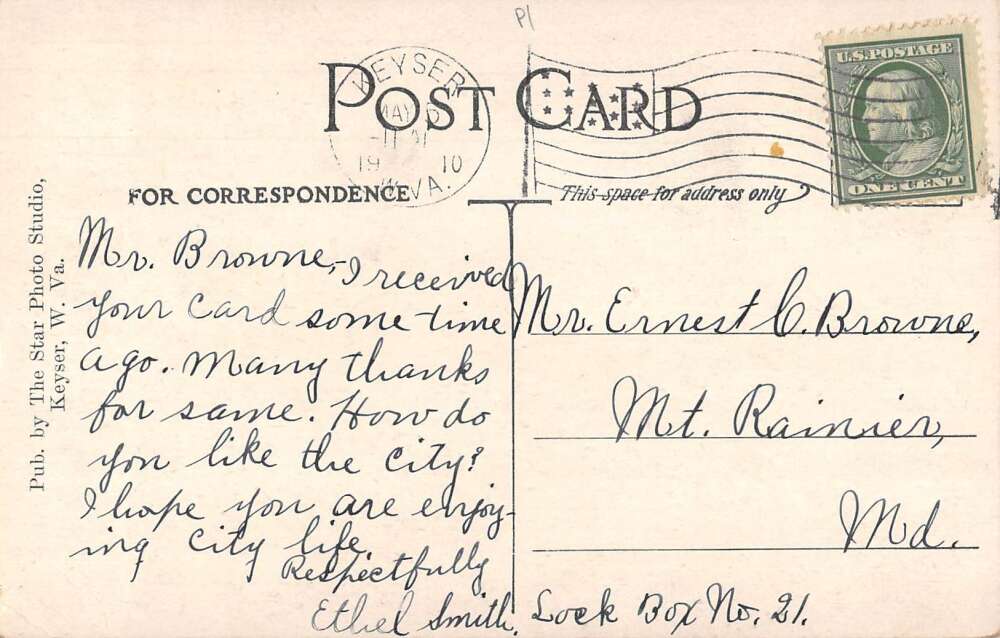 P/
POST CARD
KEYSER
MAY
19 10
W. VA.
U.S. POSTAGE
ONE CENT
FOR CORRESPONDENCE
This space for address only
Pub. by The Star Photo Studio,
Keyser, W. Va.
Mr. Browne,- I received
your card some-time
ago. Many thanks
for same. How do
you like the city?
I hope you are enjoy-
ing city life.
Respectfully
Ethel Smith.
Mr. Ernest C. Browne,
Mt. Rainier,
Md.
Lock Box No. 21.